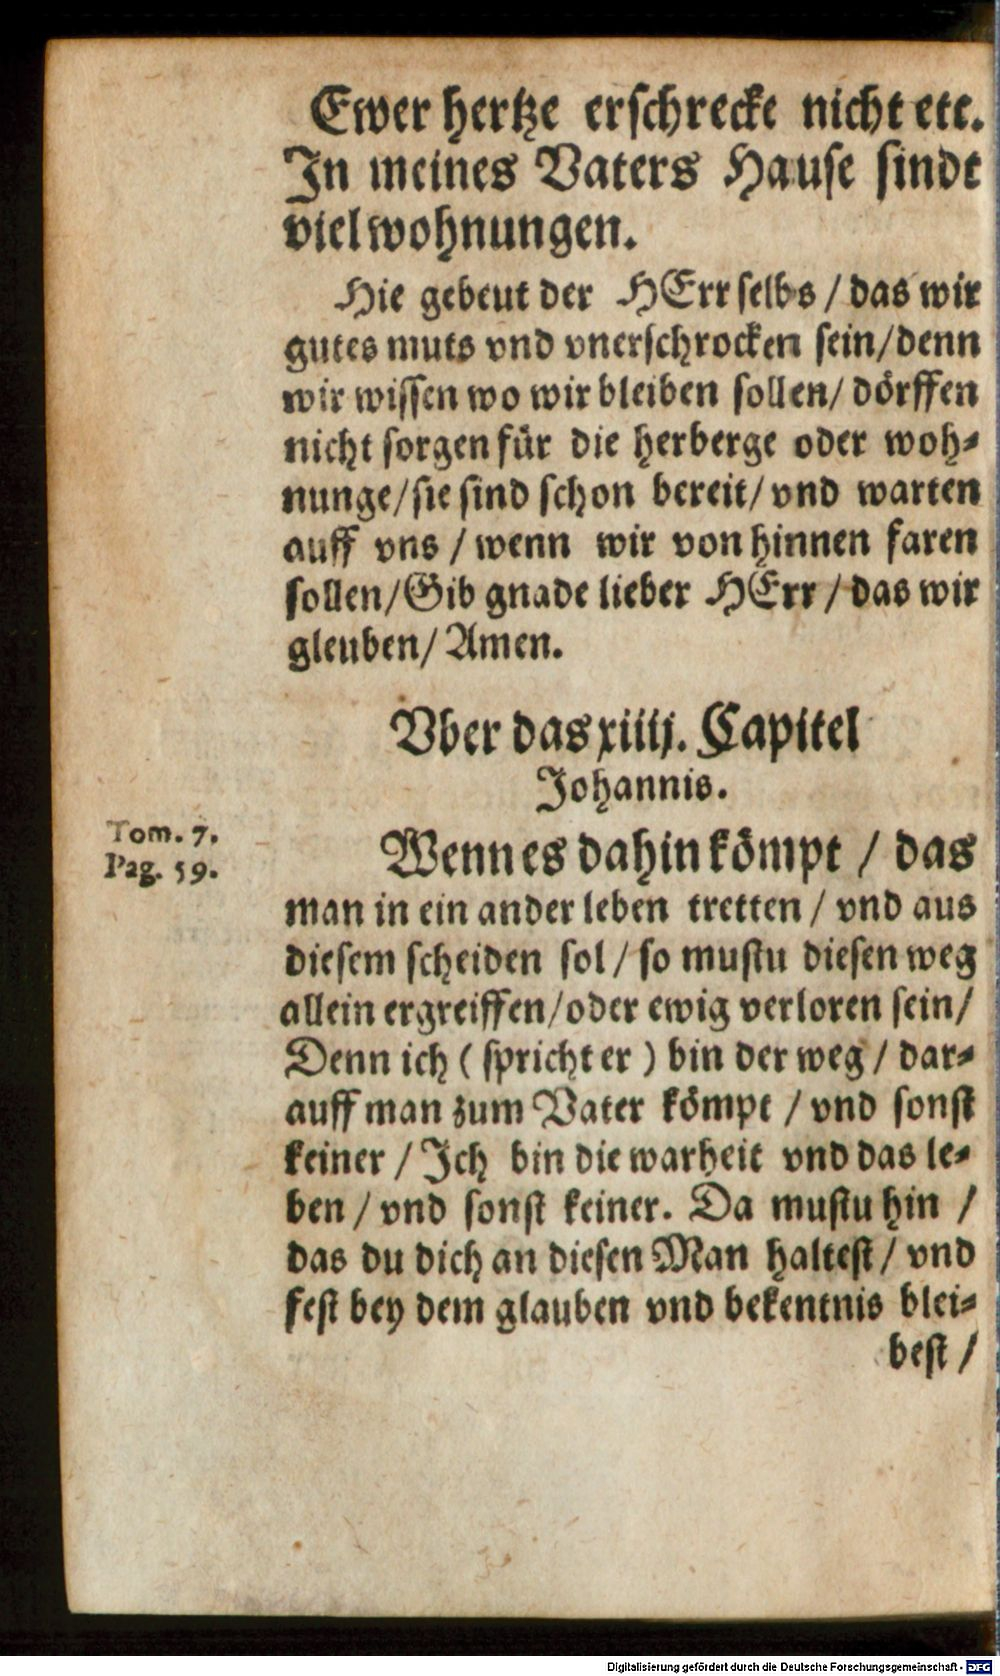 Ewer hertze erschrecke nicht etc.
In meines Vaters Hause sindt
viel wohnungen.
Hie gebeut der HErr selbs / das wir
gutes muts vnd vnerschrocken sein/denn
wir wissen wo wir bleiben sollen/ dörffen
nicht sorgen für die herberge oder woh-
nunge/sie sind schon bereit/vnd warten
auff vns / wenn wir von hinnen faren
sollen/Gib gnade lieber HErr / das wir
gleuben/ Amen.
Vber das xiiij. Capitel
Johannis.
Tom. 7.
Pag. 59.
Wenn es dahin kömpt / das
man in ein ander leben tretten / vnd aus
diesem scheiden sol / so mustu diesen weg
allein ergreiffen/oder ewig verloren sein/
Denn ich ( spricht er ) bin der weg / dar-
auff man zum Vater kömpt / vnd sonst
keiner / Ich bin die warheit vnd das le-
ben / vnd sonst keiner. Da mustu hin /
das du dich an diesen Man haltest / vnd
fest bey dem glauben vnd bekentnis blei-
best /
Digitalisierung gefördert durch die Deutsche Forschungsgemeinschaft - DFG